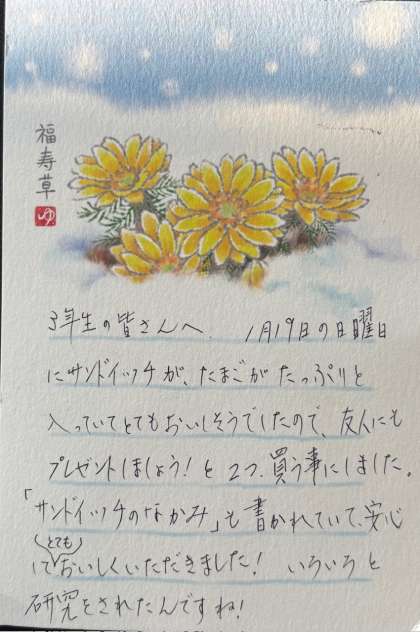 福寿草
ゆ
3年生の皆さんへ. 1月19日の日曜日
にサンドイッチが、たまごがたっぷりと
入っていてとてもおいしそうでしたので、友人にも
プレゼントしましょう!と2つ、買う事にしました。
「サンドイッチのなかみ」も書かれていて、安心
して(とても)おいしくいただきました! いろいろと
研究をされたんですね!